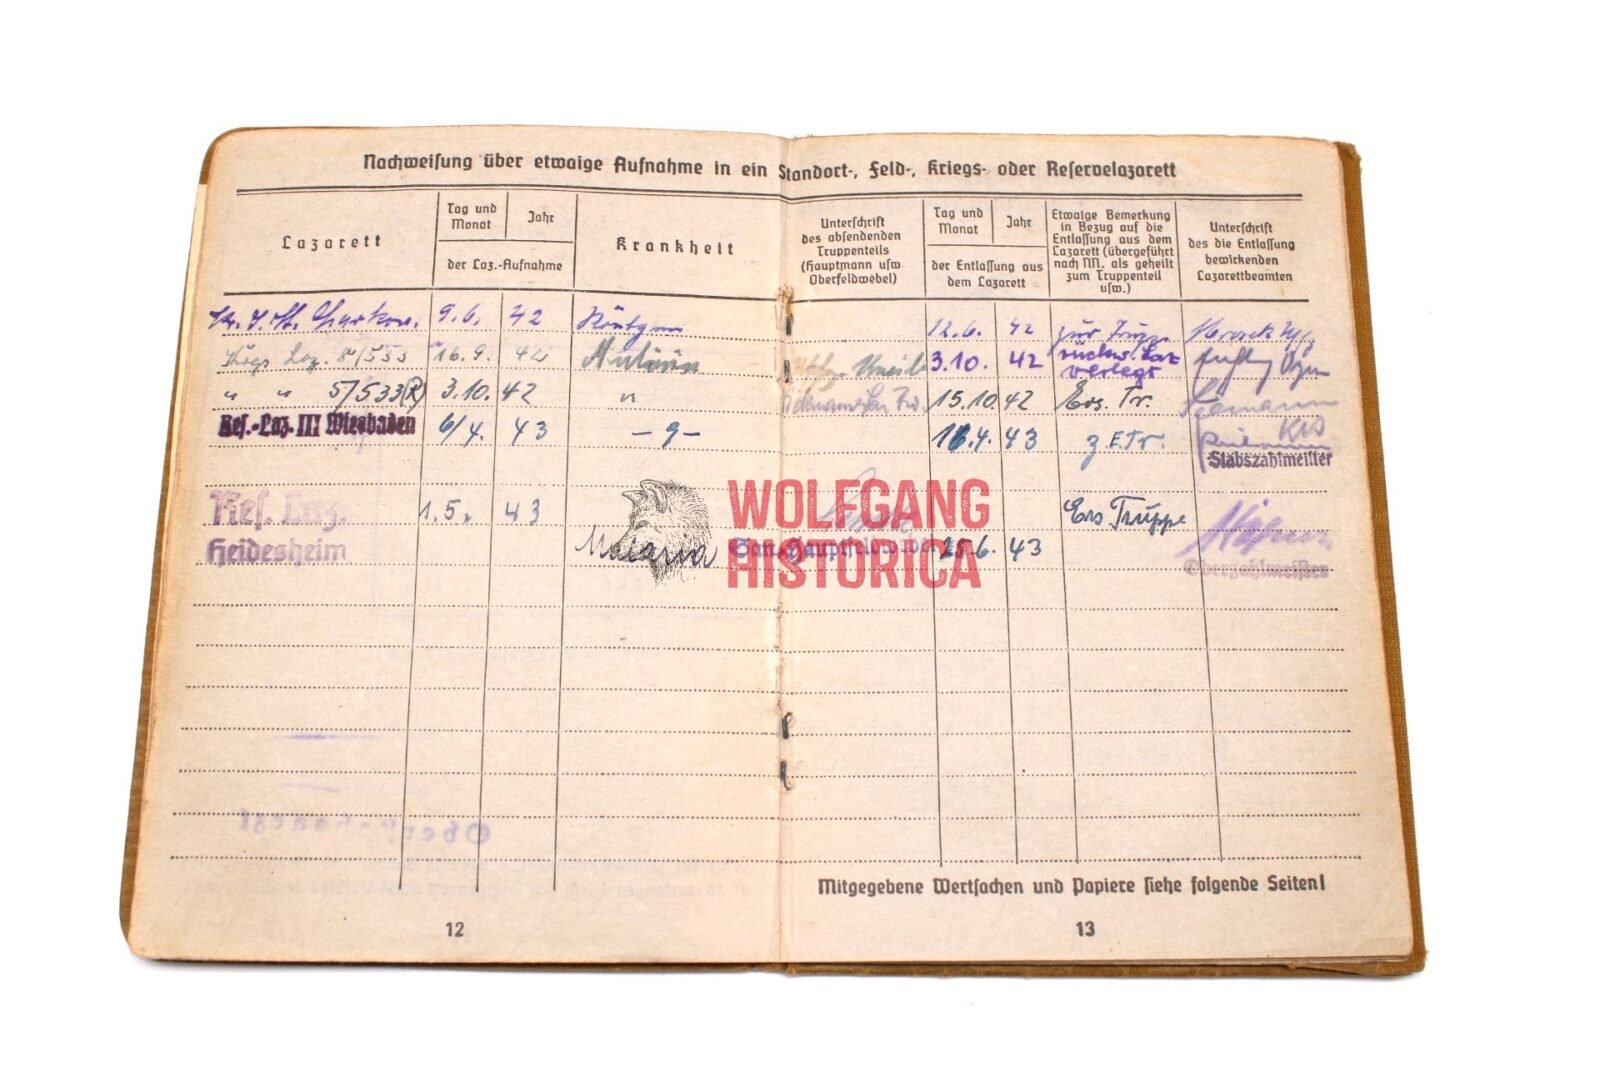 Nachweisung über etwaige Aufnahme in ein Standort-, Feld-, Kriegs- oder Reservelazarett
Lazarett
Tag und
Monat
Jahr
der Laz.-Aufnahme
Krankheit
Unterschrift
des absendenden
Truppenteils
(Hauptmann usw
Oberfeldwebel)
Tag und
Monat
Jahr
der Entlassung aus
dem Lazarett
Etwaige Bemerkung
in Bezug auf die
Entlassung aus dem
Lazarett (übergeführt
nach NN. als geheilt
zum Truppenteil
usw.)
Unterschrift
des die Entlassung
bewirkenden
Lazarettbeamten
Charkow. 9.6. 42 Röntgen 12.6. 42 zur Trupp
Krgs Laz. 16.9. 42 3.10. 42 rückw. Laz
verlegt
" " 5/533(R) 3.10. 42 " 15.10 42 Ers. Tr.
Res.-Laz. III Wiesbaden 6/4. 43 - 9 - 16.4. 43 z. E.Tr.
Stabszahlmeister
Res. Laz. 1.5. 43 Ers Truppe
Heidesheim Malaria San.-Hauptfeldwebel 6. 43
Oberzahlmeister
WOLFGANG
HISTORICA
Mitgegebene Wertsachen und Papiere siehe folgende Seiten!
12
13